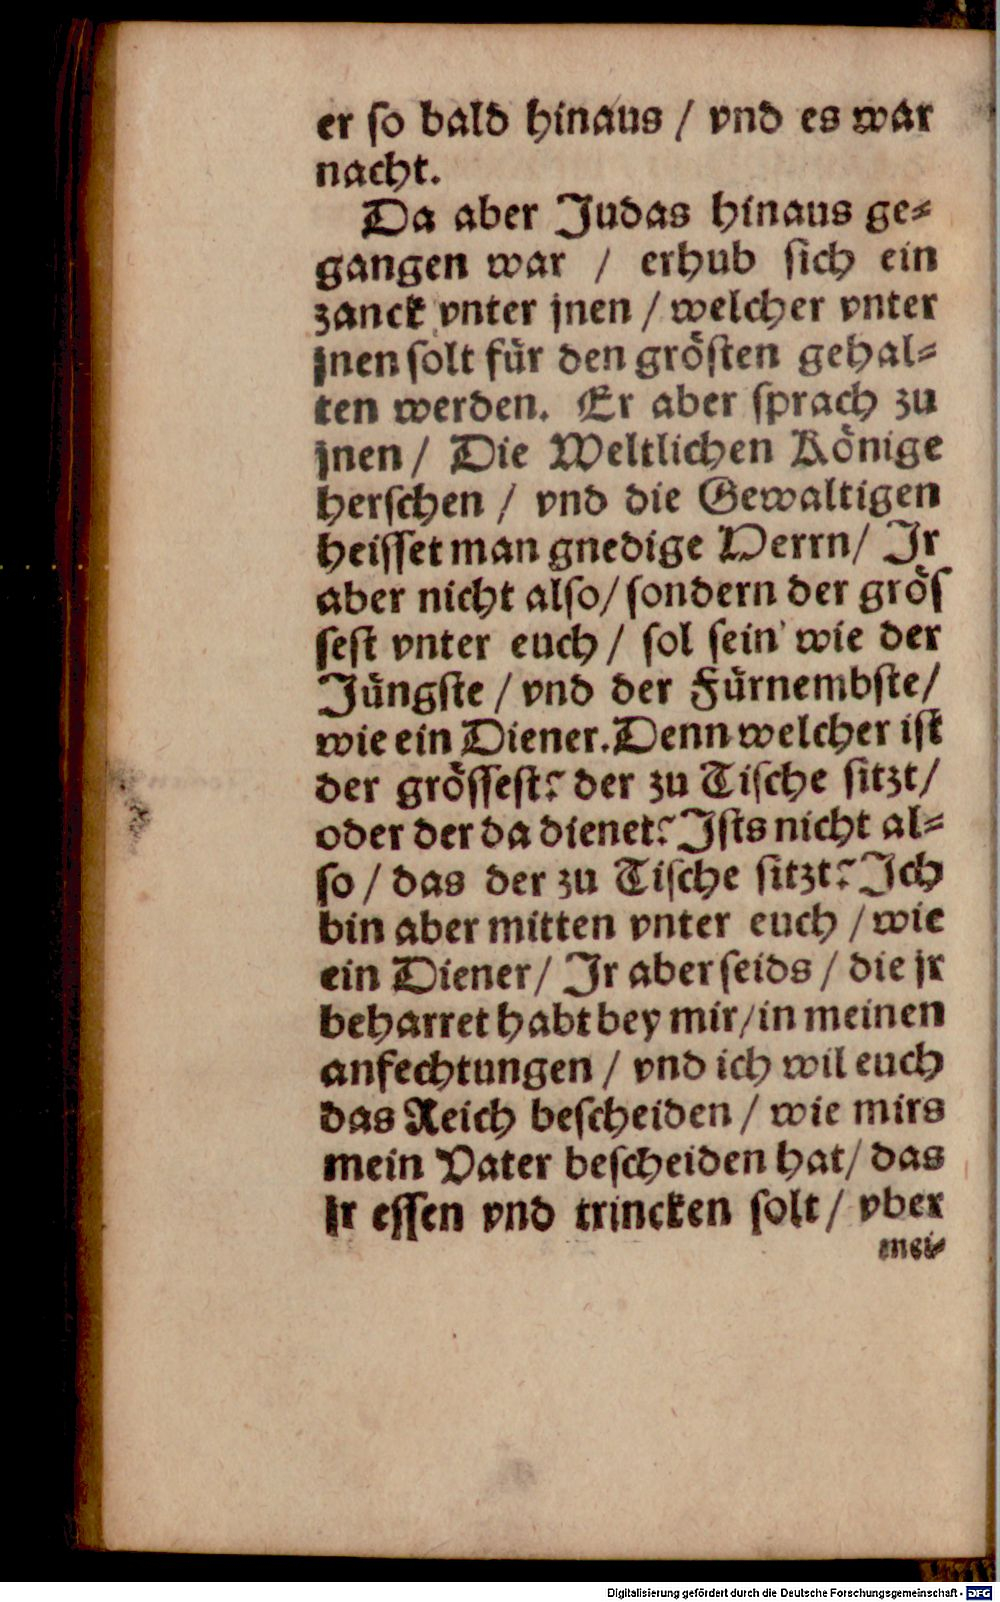 er ſo bald hinaus / vnd es war
nacht.
Da aber Judas hinaus ge⸗
gangen war / erhub ſich ein
zanck vnter jnen / welcher vnter
jnen ſolt fuͤr den groͤſten gehal⸗
ten werden. Er aber ſprach zu
jnen / Die Weltlichen Koͤnige
herſchen / vnd die Gewaltigen
heiſſet man gnedige Herrn / Jr
aber nicht alſo / ſondern der groͤſ
ſeſt vnter euch / ſol ſein wie der
Juͤngſte / vnd der Fuͤrnembſte /
wie ein Diener. Denn welcher iſt
der groͤſſeſt? der zu Tiſche ſitzt /
oder der da dienet? Jſts nicht al⸗
ſo / das der zu Tiſche ſitzt? Jch
bin aber mitten vnter euch / wie
ein Diener / Jr aber ſeids / die jr
beharret habt bey mir / in meinen
anfechtungen / vnd ich wil euch
das Reich beſcheiden / wie mirs
mein Vater beſcheiden hat / das
jr eſſen vnd trincken ſolt / vber
mei⸗
Digitalisierung gefördert durch die Deutsche Forschungsgemeinschaft - DFG